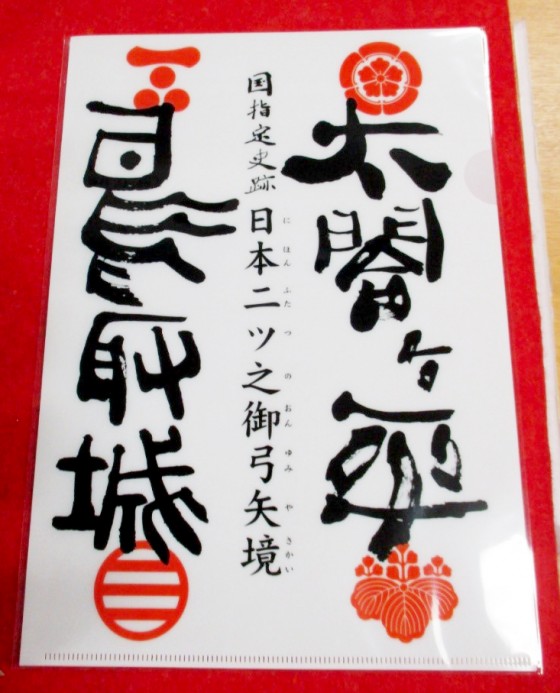 太閤ヶ平
国指定史跡 日本二ツ之御弓矢境
に ほん ふた つ の おん ゆみ や さかい
鳥取城